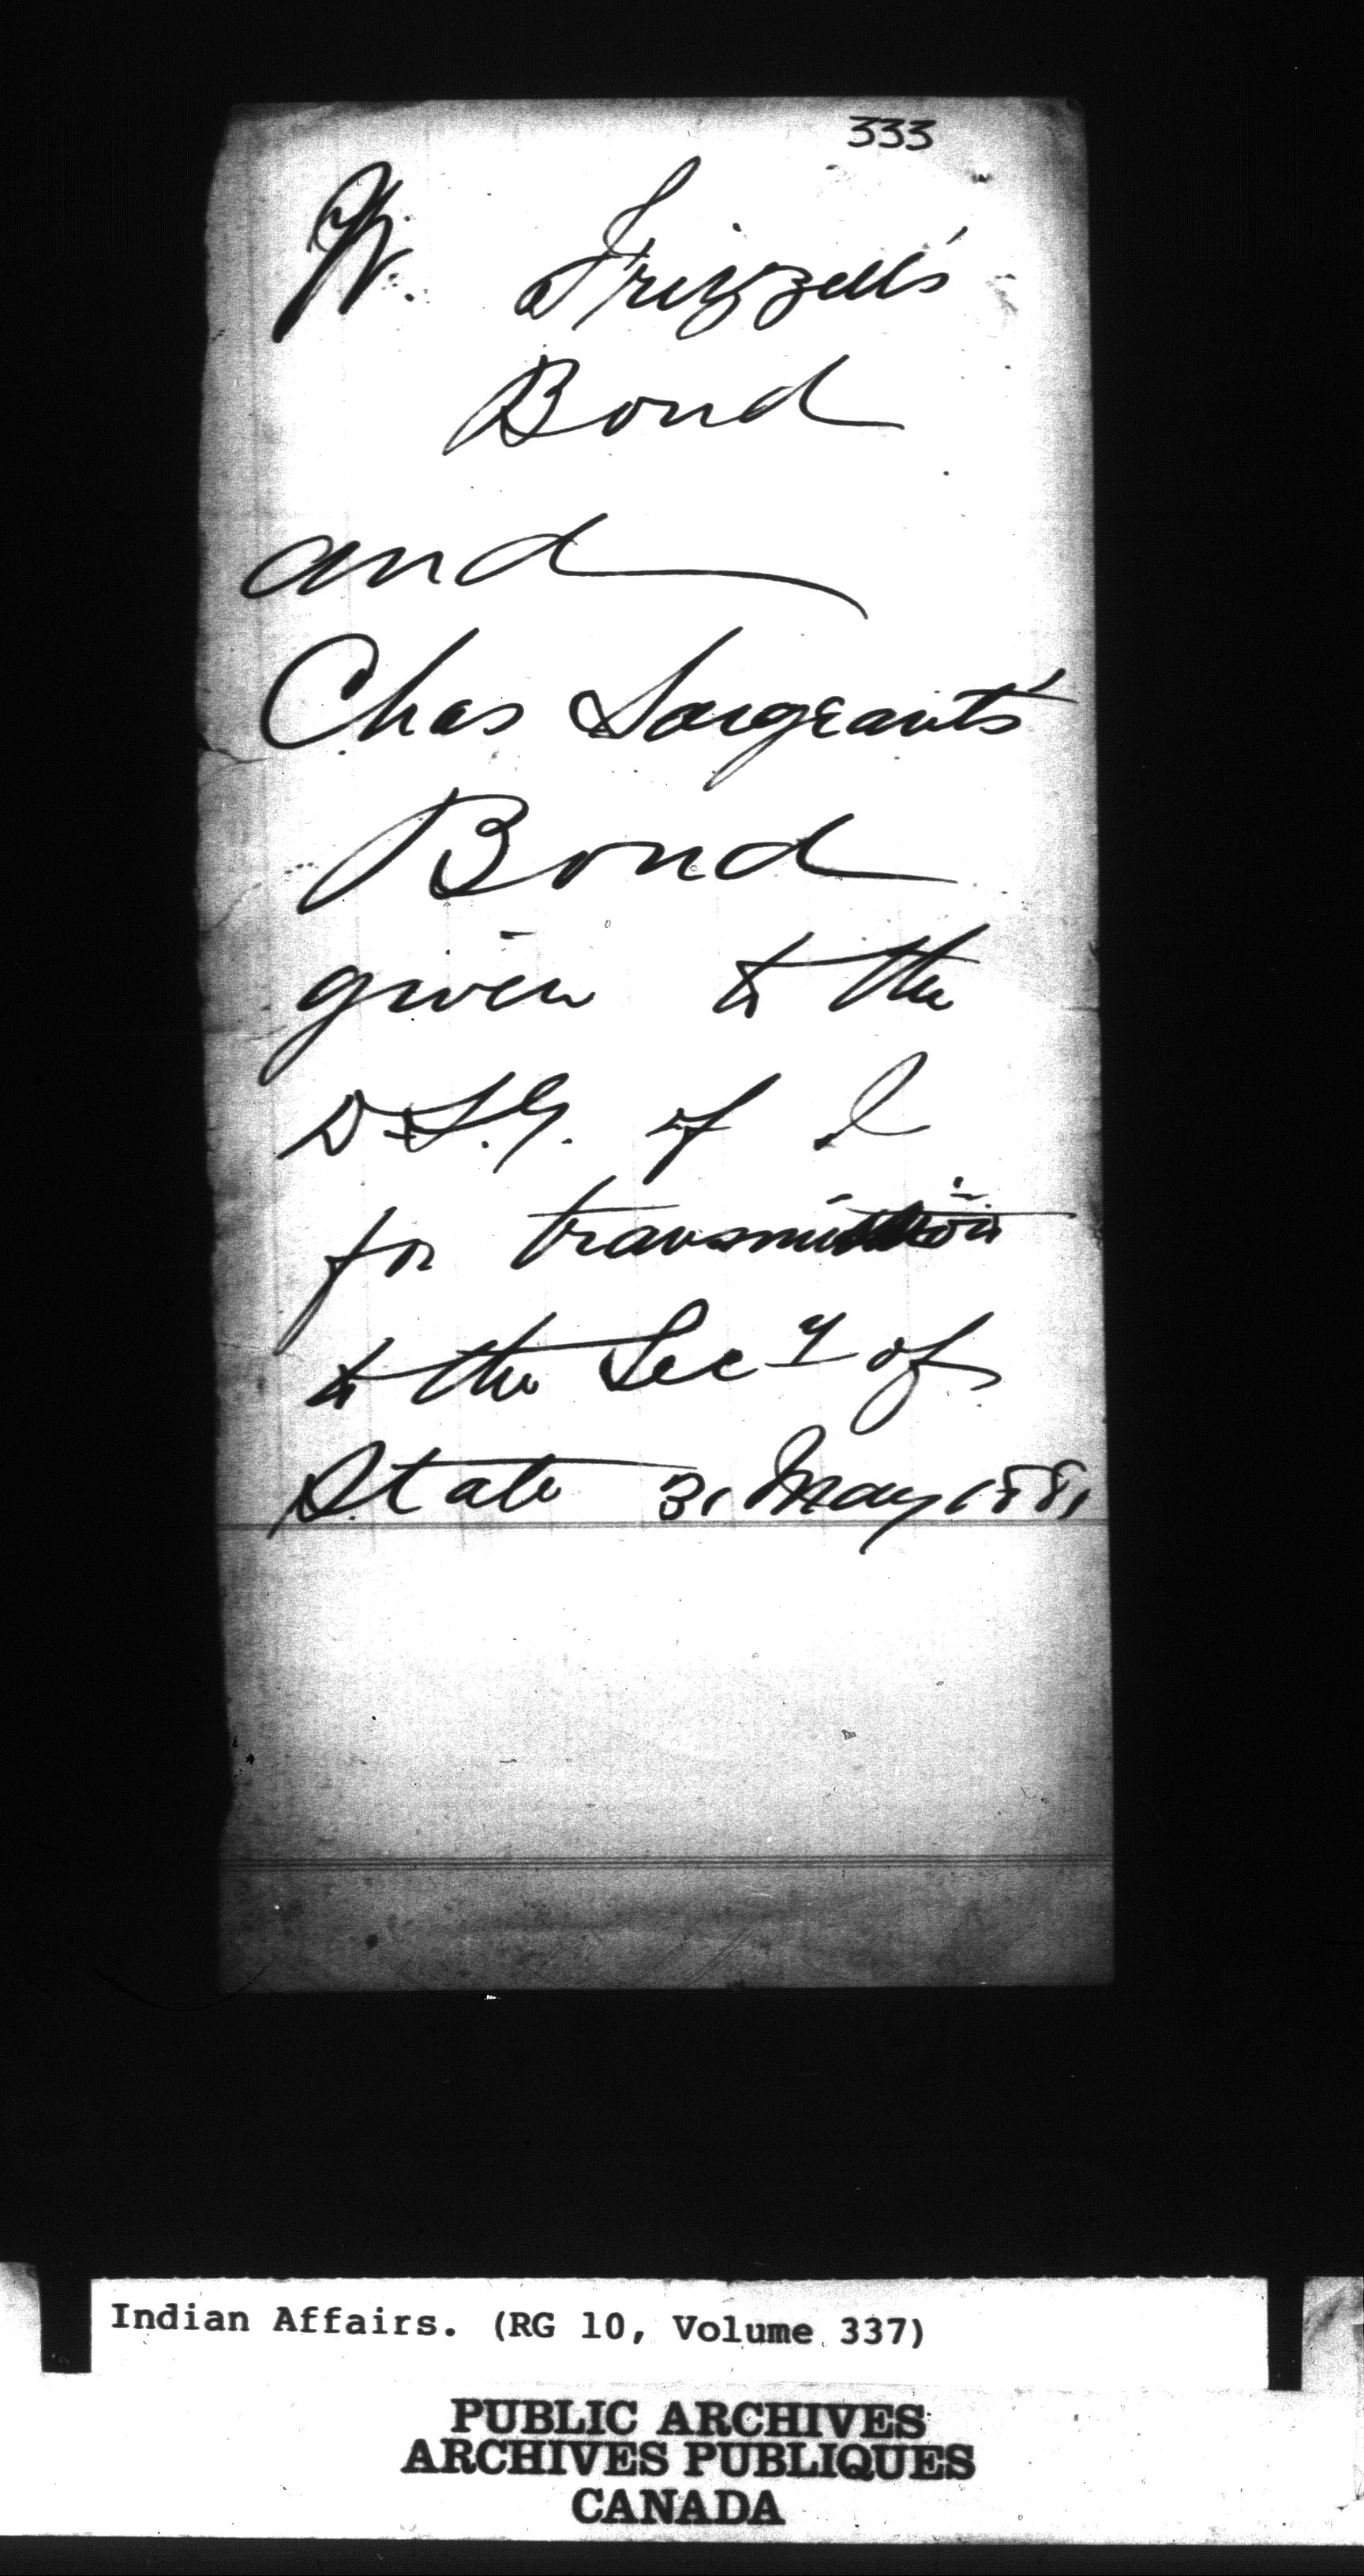 333
W. Frizzell's
Bond
and
Chas Sargeant's
Bond
given to the
D.S.G. of I
for transmission
to the Secy of
State 31 May 1881
Indian Affairs. (RG 10, Volume 337)
PUBLIC ARCHIVES
ARCHIVES PUBLIQUES
CANADA